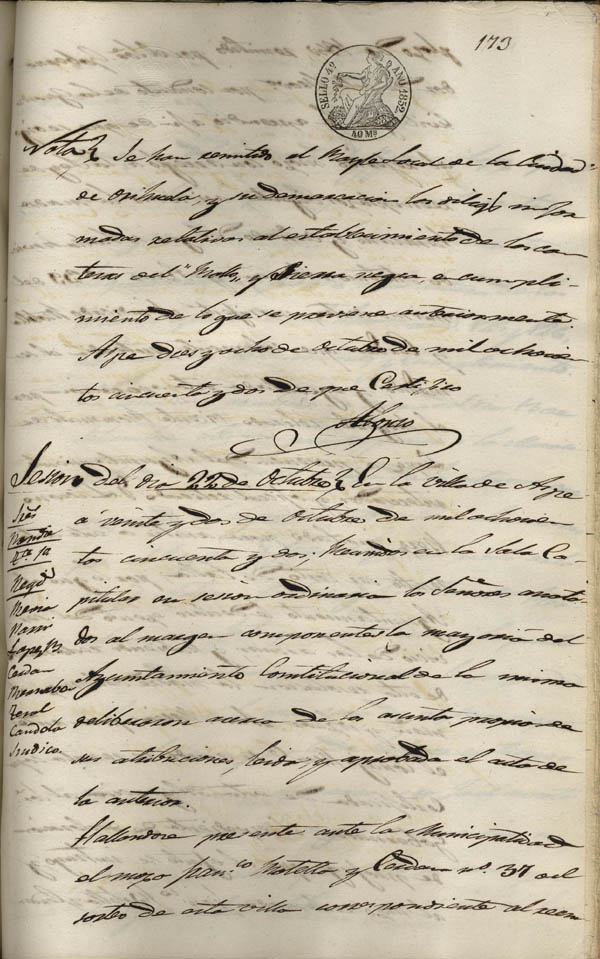 173
SELLO 4º AÑO 1852
40 Ms
Nota Se han remitido al de la Ciudad
de orihuela, y su demarcacion los infor
madas relativas al establecimiento de las can
teras del y Sierra negra, en cumpli-
miento de lo que se previene anteriormente.
Aspe dies y ocho de Octubre de mil ochocien
tos cincuenta y dos de que Certifico
Alonso
Sesion del dia 22 de Octubre En la villa de Aspe
á veinte y dos de octubre de mil ochocien
tos cincuenta y dos; Reunidos en la Sala Ca-
pitular en sesion ordinaria los Señores anota-
dos al margen componentes la mayoria del
Ayuntamiento Constitucional de la misma
deliberaron acerca de los asuntos propios de
sus atribuciones, leida y aprobada el acta de
la anterior.
Hallandose presente ante la Municipalidad
el mozo Franco Botella y Cerdan nº 37 del
sorteo de esta villa correspondiente al reem
Sres
Lopez
Cerdan
Candela
Sindico.